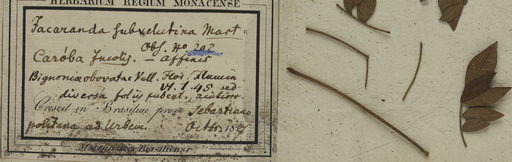 HERBARIUM REGIUM MONACENSE
Jacaranda subvelutina Mart
Obs. No 202
Caróba Incolis. — affinis
Bignonia obovatae Vell. Flor. Flumin
VI. t. 45, sed
diversa foliis pubesc., acutiori
Crescit in Brasiliae prov. Sebastiano
politana ad Urbem. Octbr. 18
Martii Iter Brasiliense